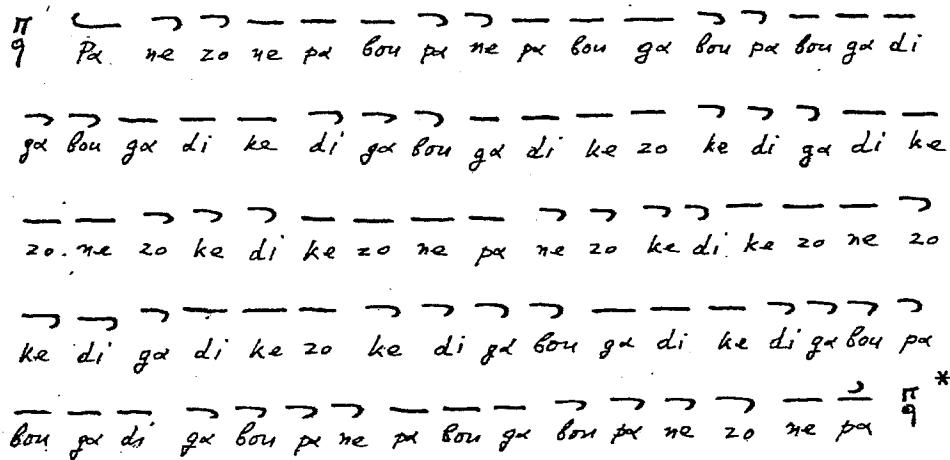 π q Pα ne zo ne pα bou pα ne pα bou gα bou pα bou gα di
gα bou gα di ke di gα bou gα di ke zo ke di gα di ke
zo. ne zo ke di ke zo ne pα ne zo ke di ke zo ne zo
ke di gα di ke zo ke di gα bou gα di ke di gα bou pα
bou gα di gα bou pα ne pα bou gα bou pα ne zo ne pα π q *